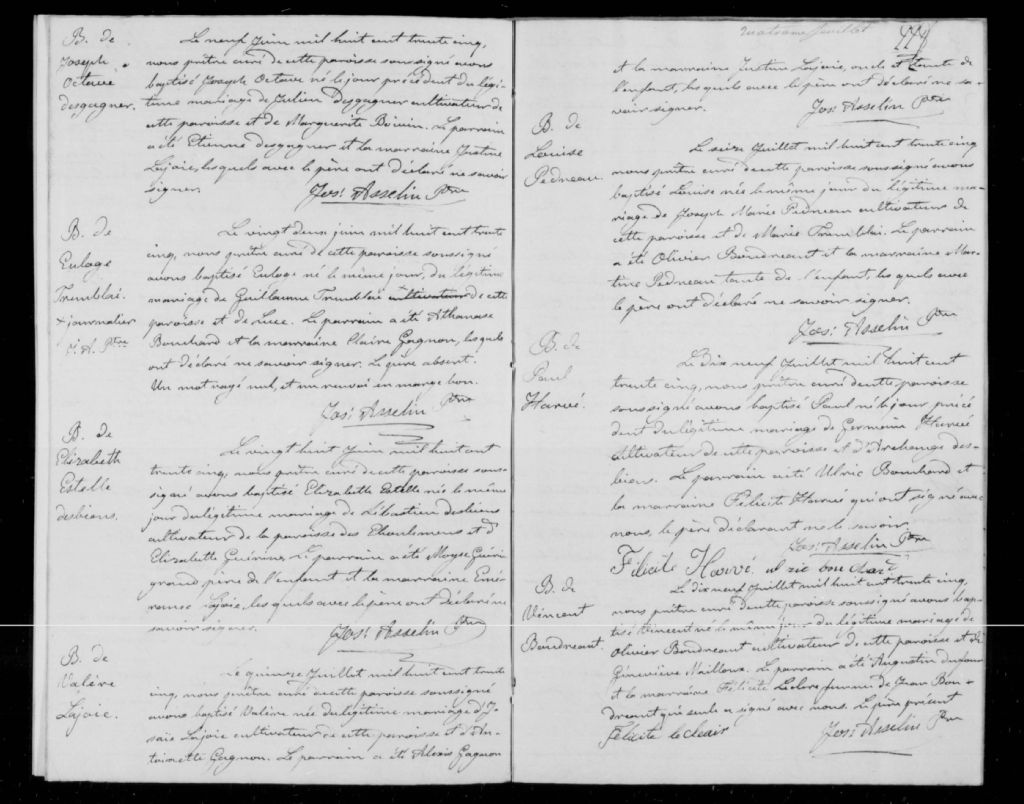 B. de
Joseph
Octave
desgagner.
Le neuf Juin mil huit cent trente cinq,
nous prêtre curé de cette paroisse soussigné avons
baptisé Joseph Octave né le jour précédent du légi-
time mariage de Julien Desgagner cultivateur de
cette paroisse et de Marguerite Boivin. Le parrain
a été Etienne desgagner et la marraine Justine
Lajoie, lesquels avec le père ont déclaré ne savoir
signer.
Jos: Asselin Ptre
B. de
Euloge
Tremblai.
+ journalier
J. A. Ptre
Le vingt deux juin mil huit cent trente
cinq, nous prêtre curé de cette paroisse soussigné
avons baptisé Euloge né le même jour, du légitime
mariage de Guillaume Tremblai cultivateur de cette
paroisse et de Luce. Le parrain a été Athanase
Bouchard et la marraine Claire Gagnon, lesquels
ont déclaré ne savoir signer. Le père absent.
Un mot rayé nul, et un renvoi en marge bon.
Jos: Asselin Ptre
B. de
Elizabeth
Estelle
desbiens.
Le vingt huit Juin mil huit cent
trente cinq, nous prêtre curé de cette paroisse sous-
signé avons baptisé Elizabette Estelle née le même
jour du légitime mariage de Sébastien desbiens
cultivateur de la paroisse des Eboulemens et d'
Elizabette Guérin. Le parrain a été Moyse Guérin
grand père de l'enfant et la marraine Emé-
rance Lajoie, lesquels avec le père ont déclaré ne
savoir signer.
Jos: Asselin Ptre
B. de
Valère
Lajoie.
Le quinze Juillet mil huit cent trente
cinq, nous prêtre curé de cette paroisse soussigné
avons baptisé Valère née du légitime mariage d'I-
saïe Lajoie cultivateur de cette paroisse et d'An-
toinette Gagnon. Le parrain a été Alexis Gagnon
feuillet
et la marraine Justine Lajoie, oncle et tante de
l'enfant, lesquels avec le père ont déclaré ne sa-
voir signer.
Jos: Asselin Ptre
B. de
Louise
Pedneau.
Le seize Juillet mil huit cent trente cinq
nous prêtre curé de cette paroisse soussigné avons
baptisé Louise née le même jour du légitime ma-
riage de Joseph Marie Pedneau cultivateur de
cette paroisse et de Marie Tremblai. Le parrain
a été Olivier Boudreault et la marraine Mar-
tine Pedneau tante de l'enfant, lesquels avec
le père ont déclaré ne savoir signer.
Jos: Asselin Ptre
B. de
Paul
Harvé.
Le dix neuf Juillet mil huit cent
trente cinq, nous prêtre curé de cette paroisse
soussigné avons baptisé Paul né le jour précé
dent du légitime mariage de Germain Harvé
cultivateur de cette paroisse et d'Archange des-
biens. Le parrain a été Ulric Bouchard et
la marraine Félicité Harvé qui ont signé avec
nous, le père déclarant ne le savoir.
Jos: Asselin Ptre
Félicité Harvé. ul ric bou chard
B. de
Vincent
Boudreault.
Le dix neuf Juillet mil huit cent trente cinq,
nous prêtre curé de cette paroisse soussigné avons bap-
tisé Vincent né le même jour du légitime mariage de
Olivier Boudreault cultivateur de cette paroisse et de
Geneviève Mailloux. Le parrain a été Augustin dufour
et la marraine Félicité Leclerc femme de Jean Bou-
dreault qui seule a signé avec nous. Le père présent
félicité leclair
Jos: Asselin Ptre